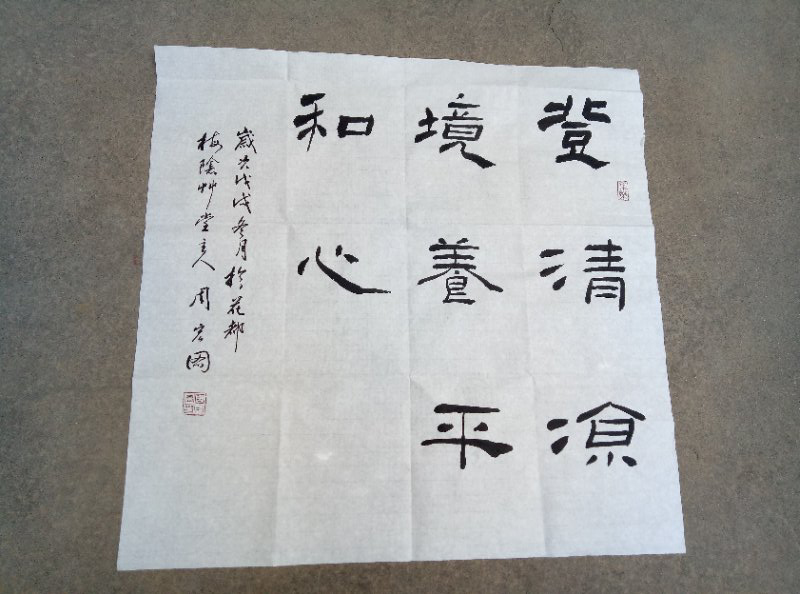 登清凉
境養平
和心
歲次戊戌冬月於花都
梅陰艸堂主人周岩國